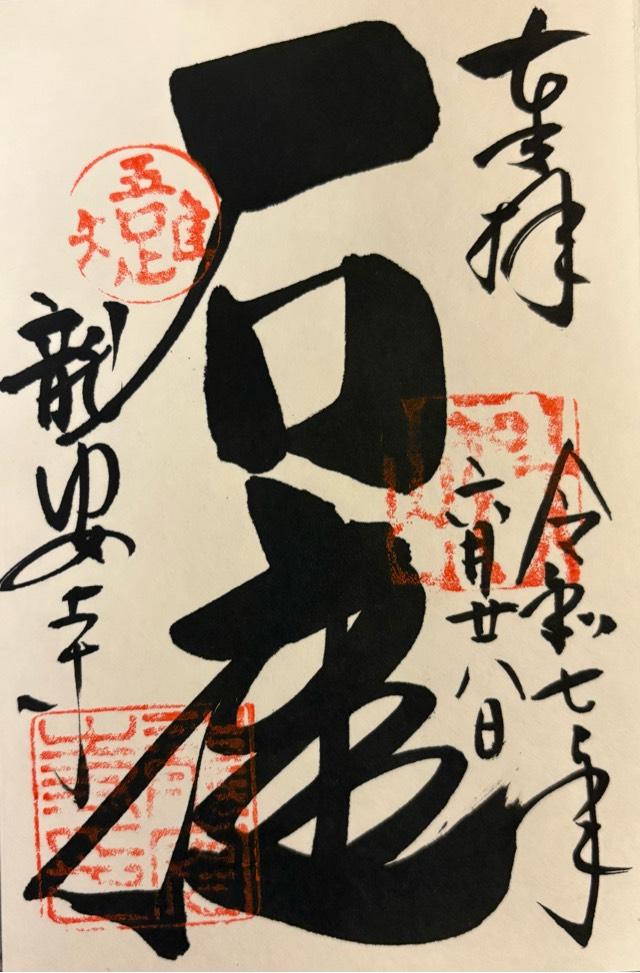 奉拝
令和七年
六月廿八日
石庭
吾唯足知
龍安寺